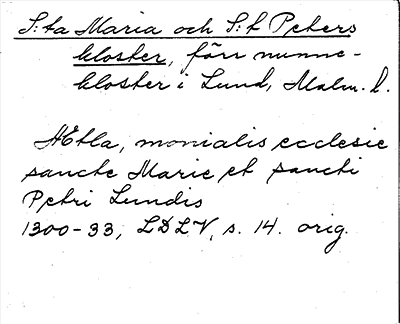 S:ta Maria och S:t Peters
kloster, förr nunne-
kloster i Lund, Malm. l.
AEtla, monialis ecclesie
sancte Marie et sancti
Petri Lundis
1300-33, LDLV, s. 14. orig.